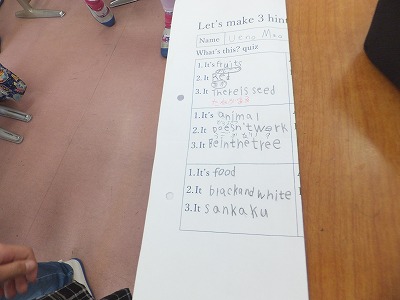 Let's make 3 hin
Name Ueno Mao
What's this? quiz
1. It's fruits
2. It Red
3. It Thereis seed
1. It's animal
2. It Doesn't work
3. It Beinthetree
1. It's food
2. It blackandwhite
3. It sankaku